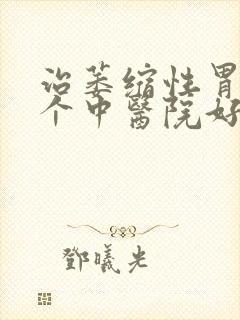 治萎缩性胃
个中醫院好
鄧曦光